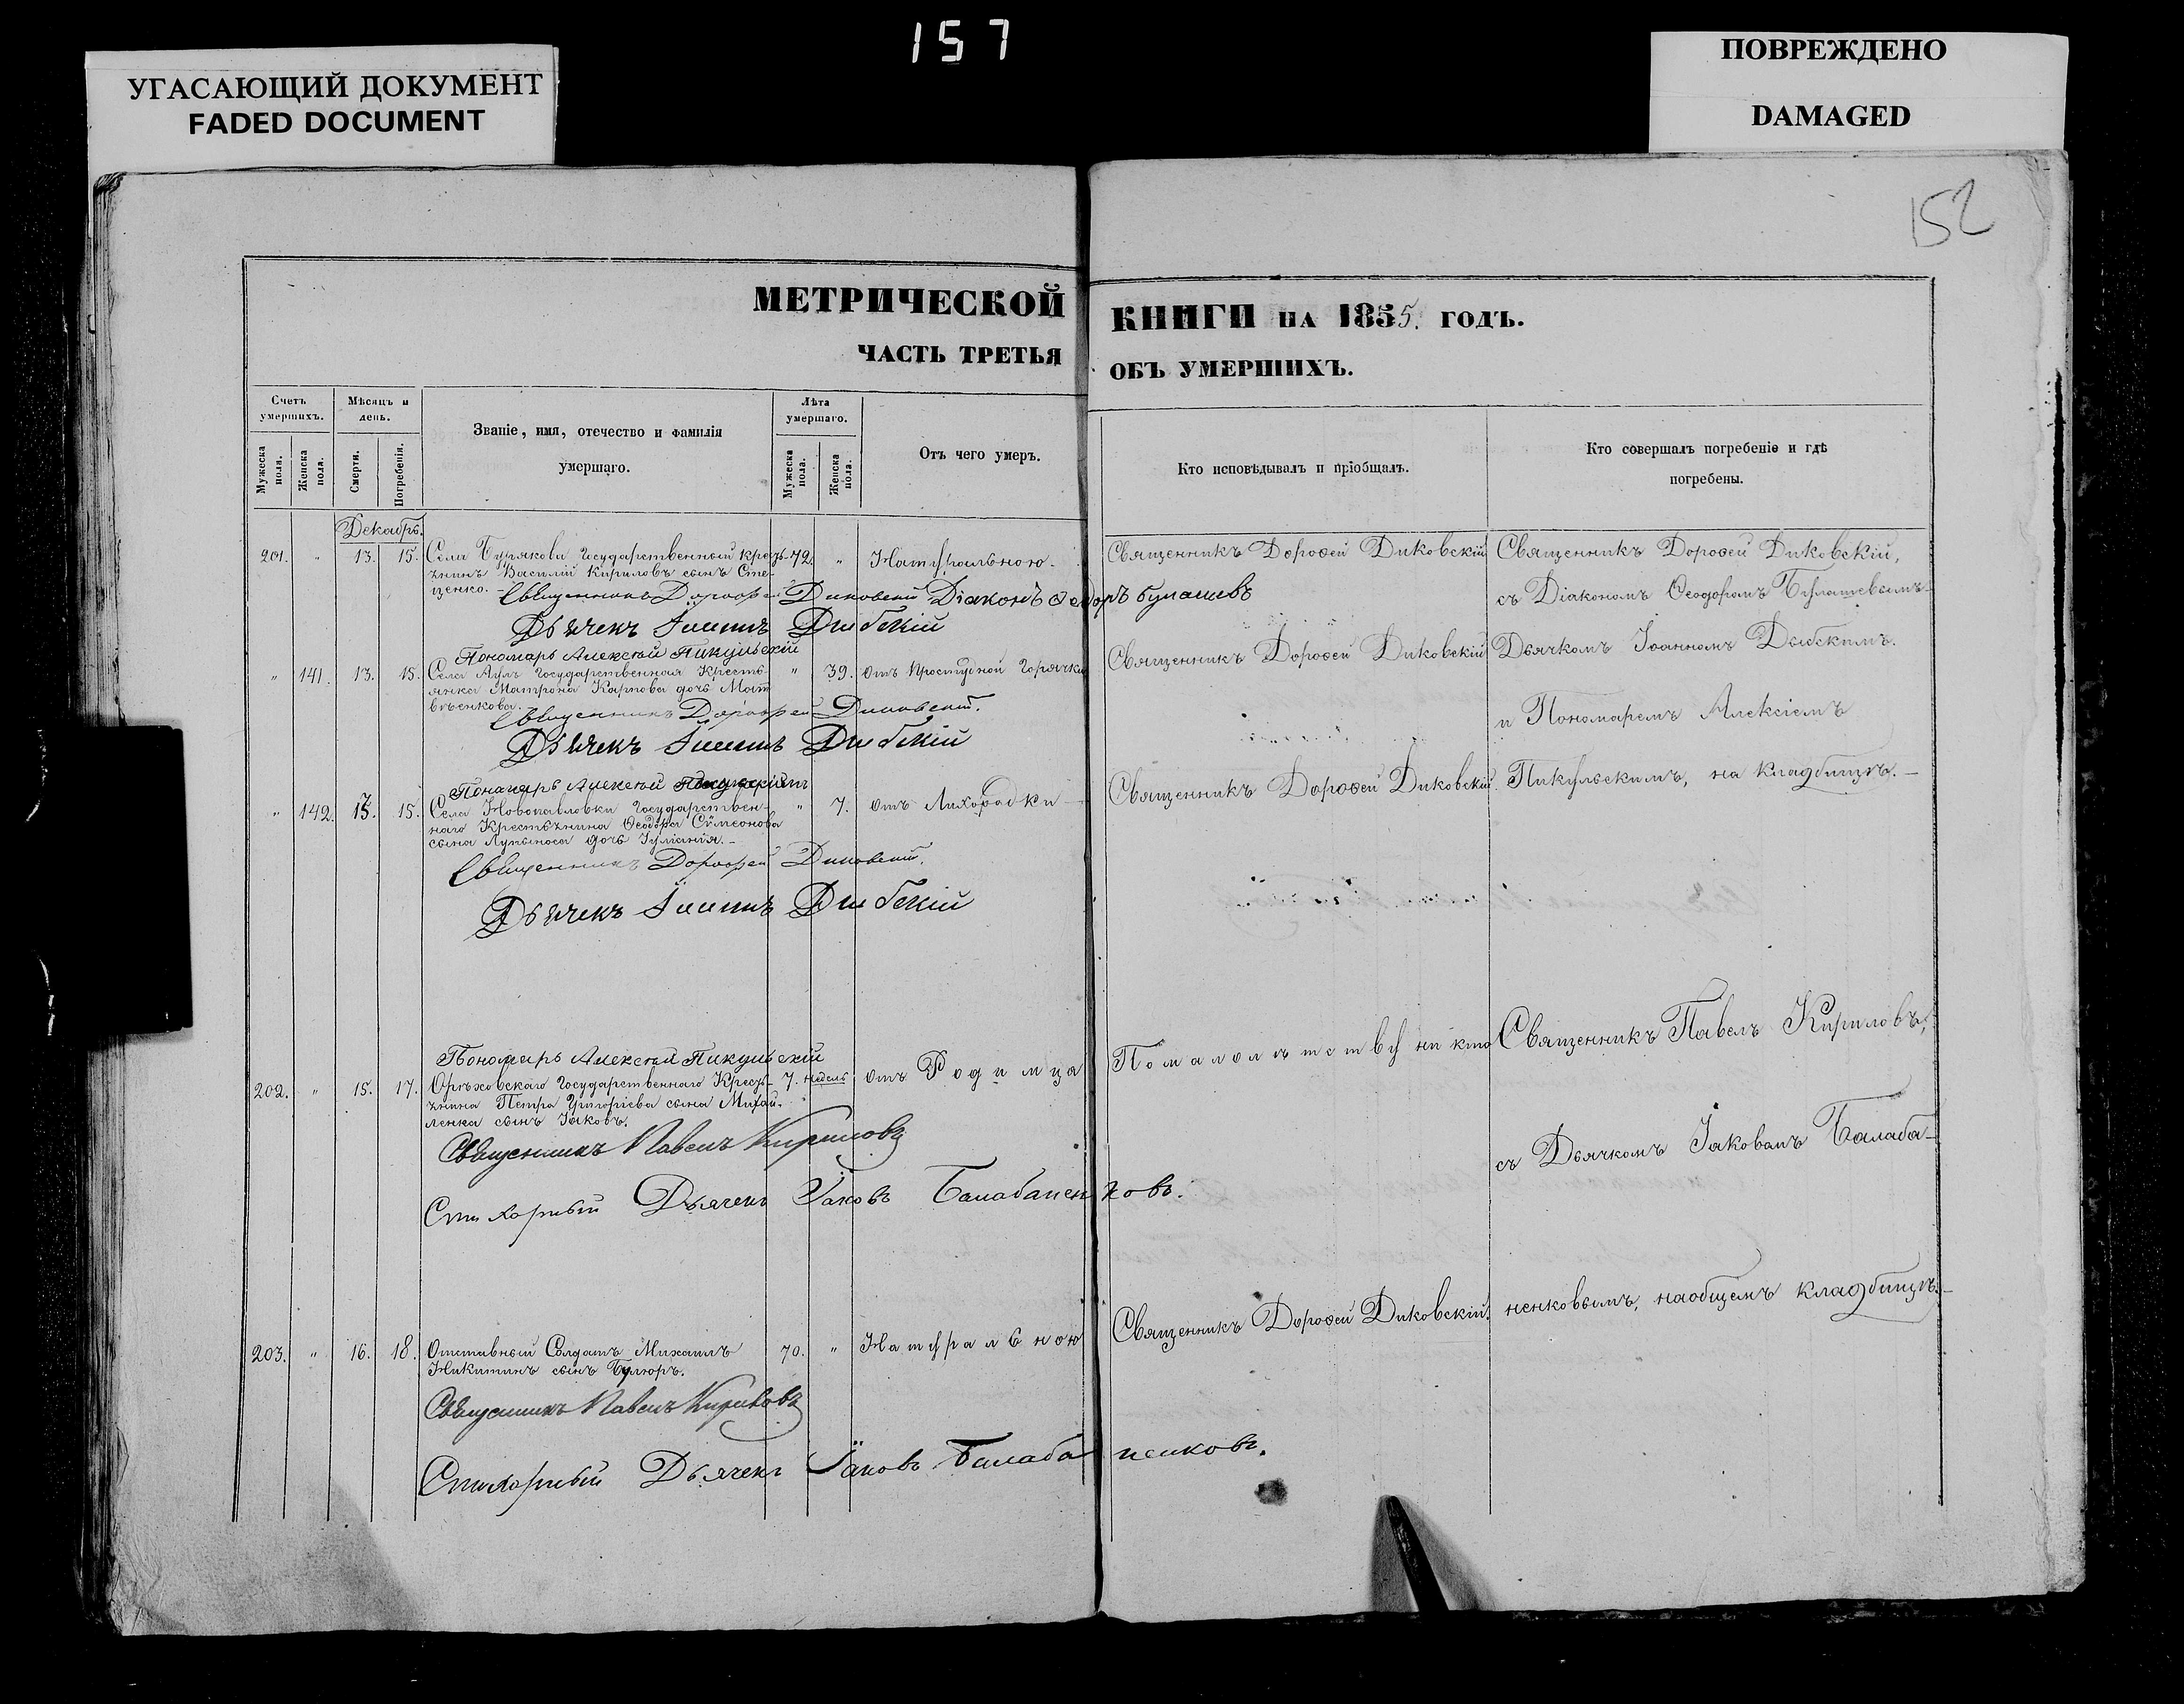 157
УГАСАЮЩИЙ ДОКУМЕНТ
FADED DOCUMENT
ПОВРЕЖДЕНО
DAMAGED
152
МЕТРИЧЕСКОЙ КНИГИ НА 1855. ГОДЪ.
ЧАСТЬ ТРЕТЬЯ ОБЪ УМЕРШИХЪ.
Счетъ умершихъ.
Мужеска пола.
Женска пола.
Мѣсяцъ и день.
Смерти.
Погребенія.
Званіе, имя, отечество и фамилія умершаго.
Лѣта умершаго.
Мужеска пола.
Женска пола.
Отъ чего умеръ.
Кто исповѣдывалъ и пріобщалъ.
Кто совершалъ погребеніе и гдѣ погребены.
Декабрь.
201. " 13. 15. Села Государственный крестъ- 72. " Натуральною. Священникъ Дорофей Диковскій Священникъ Дорофей Диковскій,
янинъ Василій Кириловъ сынъ Сте-
ценко.
Священникъ Дорофей Диковскій Діаконъ Ѳеодоръ Булашевъ
съ Діакономъ Ѳеодоромъ Булашевымъ
Дьячекъ Іоаннъ Дыбскій
Пономарь Алексѣй Пикульскій
" 141. 13. 15. Села Аулъ Государственная Кресть- " 39. отъ Простудной Горячки Священникъ Дорофей Диковскій Дьячкомъ Іоанномъ Дыбскимъ.
янка Матрона Карпова дочь Мат
вѣенкова.
Священникъ Дорофей Диковскій.
и Пономаремъ Алексіемъ
Дьячекъ Іоаннъ Дыбскій
Пономарь Алексѣй
" 142. 13. 15. Села Новопавловки Государствен- " 7. отъ Лихорадки Священникъ Дорофей Диковскій. Пикульскимъ, на кладбищѣ.
наго Крестьянина Ѳеодора Сѵмеонова
сына дочь Іуліанія.
Священникъ Дорофей Диковскій.
Дьячекъ Іоаннъ Дыбскій
Пономарь Алексѣй Пикульскій
202. " 15. 17. Орѣховскаго Государственнаго Кресть- 7. недель отъ Родимца По малолѣтству ни кто Священникъ Павелъ Кириловъ,
янина Петра Григоріева сына Михай-
ленка сынъ Іаковъ.
Священникъ Павелъ Кириловъ
съ Дьячкомъ Іаковомъ Балаба-
Стихарный Дьячекъ Іаковъ Балабаненковъ.
203. " 16. 18. Отставный Солдатъ Михаилъ 70. " Натуральною Священникъ Дорофей Диковскій. ненковымъ, на общемъ кладбищѣ.
Никитинъ сынъ
Священникъ Павелъ Кириловъ
Стихарный Дьячекъ Іаковъ Балабаненковъ.